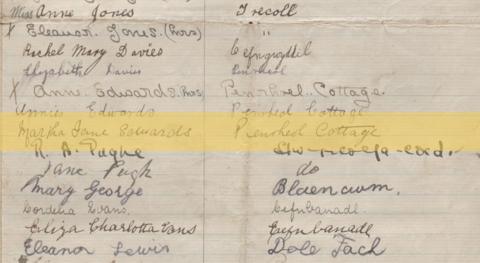 Miss Anne Jones Trecoll
X Eleanor. Jones. (Mrs) "
Rachel Mary Davies
Elizabeth Davies
X Anne. Edwards. Mrs Penrheol.. Cottage.
Annie Edwards Penrheol Cottage
Martha Jane Edwards Penrheol Cottage
R. A. Pugh
Jane Pugh do
Mary George Blaencwm.
Cordelia Evans. Cefnbanadl.
Eliza Charlotta Evans Cefnbanadl
Eleanor Lewis Dole Fach